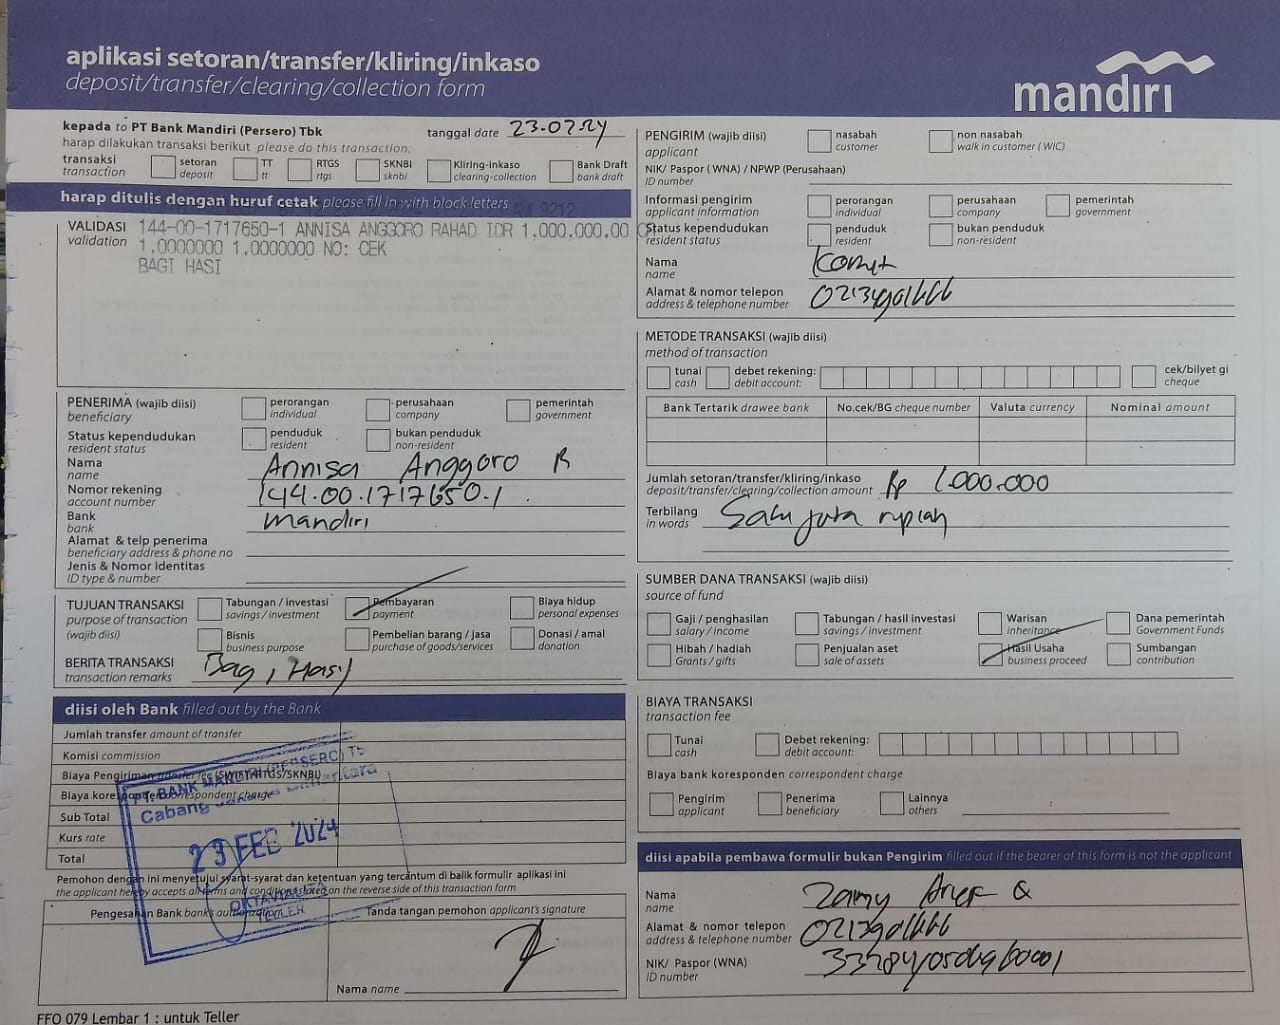 aplikasi setoran/transfer/kliring/inkaso
deposit/transfer/clearing/collection form
mandiri
kepada to PT Bank Mandiri (Persero) Tbk
tanggal date 23-02-24
harap dilakukan transaksi berikut please do this transaction:
transaksi transaction
setoran deposit
TT tt
RTGS rtgs
SKNBI sknbi
Kliring-inkaso clearing-collection
Bank Draft bank draft
harap ditulis dengan huruf cetak please fill in with block letters
VALIDASI validation
144-00-1717650-1 ANNISA ANGGORO RAHAD IDR 1,000,000.00
1.0000000 1.0000000 NO: CEK
BAGI HASI
PENERIMA (wajib diisi) beneficiary
perorangan individual
perusahaan company
pemerintah government
Status kependudukan resident status
penduduk resident
bukan penduduk non-resident
Nama name Annisa Anggoro R
Nomor rekening account number 144.00.1717650.1
Bank bank mandiri
Alamat & telp penerima
beneficiary address & phone no
Jenis & Nomor Identitas
ID type & number
TUJUAN TRANSAKSI
purpose of transaction
(wajib diisi)
Tabungan / investasi savings / investment
Pembayaran payment
Biaya hidup personal expenses
Bisnis business purpose
Pembelian barang / jasa purchase of goods/services
Donasi / amal donation
BERITA TRANSAKSI transaction remarks Bagi Hasil
diisi oleh Bank filled out by the Bank
Jumlah transfer amount of transfer
Komisi commission
Biaya Pengiriman transfer fee (SWIFT/RTGS/SKNBI)
Biaya koresponden correspondent charge
Sub Total
Kurs rate
Total
PT. BANK MANDIRI (PERSERO) Tb
Cabang
23 FEB 2024
TELLER
Pemohon dengan ini menyetujui syarat-syarat dan ketentuan yang tercantum di balik formulir aplikasi ini
the applicant hereby accepts all terms and conditions stated on the reverse side of this transaction form
Pengesahan Bank bank's authorization
Tanda tangan pemohon applicant's signature
Nama name
FFO 079 Lembar 1 : untuk Teller
PENGIRIM (wajib diisi) applicant
nasabah customer
non nasabah walk in customer (WIC)
NIK/ Paspor (WNA) / NPWP (Perusahaan)
ID number
Informasi pengirim applicant information
perorangan individual
perusahaan company
pemerintah government
Status kependudukan resident status
penduduk resident
bukan penduduk non-resident
Nama name
Alamat & nomor telepon
address & telephone number
METODE TRANSAKSI (wajib diisi)
method of transaction
tunai cash
debet rekening: debit account:
cek/bilyet gi cheque
Bank Tertarik drawee bank
No.cek/BG cheque number
Valuta currency
Nominal amount
Jumlah setoran/transfer/kliring/inkaso
deposit/transfer/clearing/collection amount Rp 1.000.000
Terbilang in words Satu juta rupiah
SUMBER DANA TRANSAKSI (wajib diisi)
source of fund
Gaji / penghasilan salary / income
Tabungan / hasil investasi savings / investment
Warisan inheritance
Dana pemerintah Government Funds
Hibah / hadiah Grants / gifts
Penjualan aset sale of assets
Hasil Usaha business proceed
Sumbangan contribution
BIAYA TRANSAKSI
transaction fee
Tunai cash
Debet rekening: debit account:
Biaya bank koresponden correspondent charge
Pengirim applicant
Penerima beneficiary
Lainnya others
diisi apabila pembawa formulir bukan Pengirim filled out if the bearer of this form is not the applicant
Nama name
Alamat & nomor telepon
address & telephone number
NIK/ Paspor (WNA)
ID number